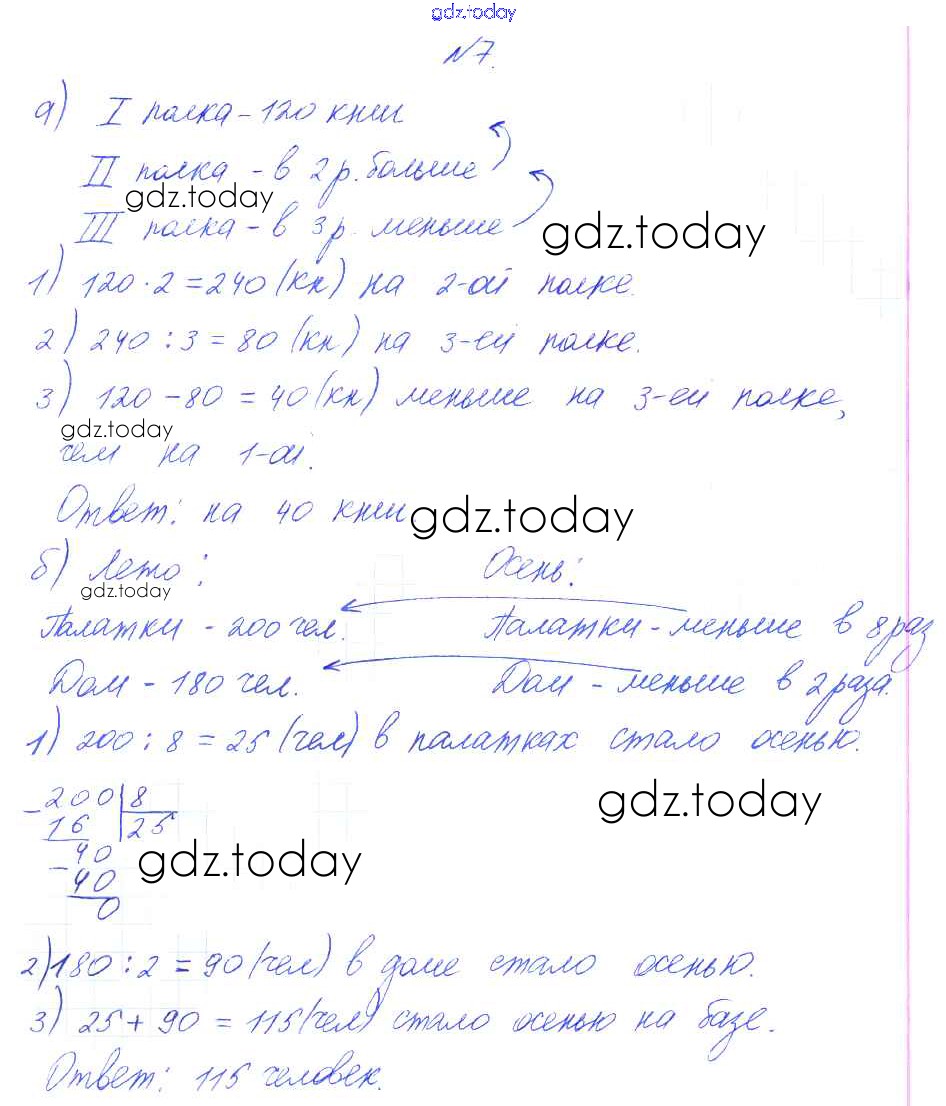 gdz.today
№7.
а) I полка - 120 книг
II полка - в 2 р. больше
gdz.today
III полка - в 3 р. меньше
gdz.today
1) 120 · 2 = 240 (кн) на 2-ой полке.
2) 240 : 3 = 80 (кн) на 3-ей полке.
3) 120 - 80 = 40 (кн) меньше на 3-ей полке,
gdz.today
чем на 1-ой.
Ответ: на 40 книг.
gdz.today
б) Лето: Осень:
gdz.today
Палатки - 200 чел. Палатки - меньше в 8 раз
Дом - 180 чел. Дом - меньше в 2 раза.
1) 200 : 8 = 25 (чел) в палатках стало осенью.
- 200 8
16 25
gdz.today
- 40
gdz.today
40
0
2) 180 : 2 = 90 (чел) в доме стало осенью.
3) 25 + 90 = 115 (чел) стало осенью на базе.
Ответ: 115 человек.